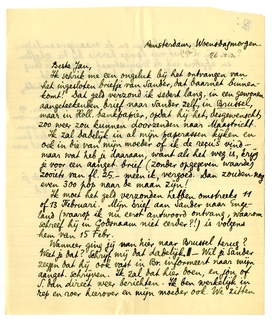 Amsterdam, Woensdagmorgen.
Beste Jan,
Ik schrik me een ongeluk bij het ontvangen van
het ingesloten briefje van Sander, dat daarnet binnen-
komt! Dat geld verzond ik iederst lang, in een gewonen
aangetekenden brief naar Sander zelf, in Brussel,
maar in Holl. bankpapier, opdat hij het desgewenscht
zoo weer zou kunnen doorzenden naar Maastricht.
Ik zal dadelijk in al mijn paperassen kijken en
ook in die van mijn moeder of ik de reçu's vind:
maar wat heb je daaraan, want als het weg is, krijg
je voor een aangetek. brief (zonder opgegeven waarde)
zooiets van fl. 25.- meen ik, vergoed. Dan zouden nog
even 300 pop naar de maan zijn!
Ik moet het geld verzonden hebben omstreeks 11
of 13 Februari. Mijn brief aan Sander naar Enge-
land (waarop ik nu eerst antwoord ontvang, waarom
schreef hij in Godsnaam niet eerder?!) is volgens
hem van 15 Febr.
Wanneer ging zij van hier naar Brussel terug?
Weet je dat? Schrijf mij dat dadelijk! Wil je Sander
zeggen dat hij ook vast in Br. informeert naar mijn
aanget. schrijven. Ik zal dat hier doen, en jou of
S. dan direct weer berichten. Ik ben werkelijk in
rep en roer hierover en mijn moeder ook. We zitten